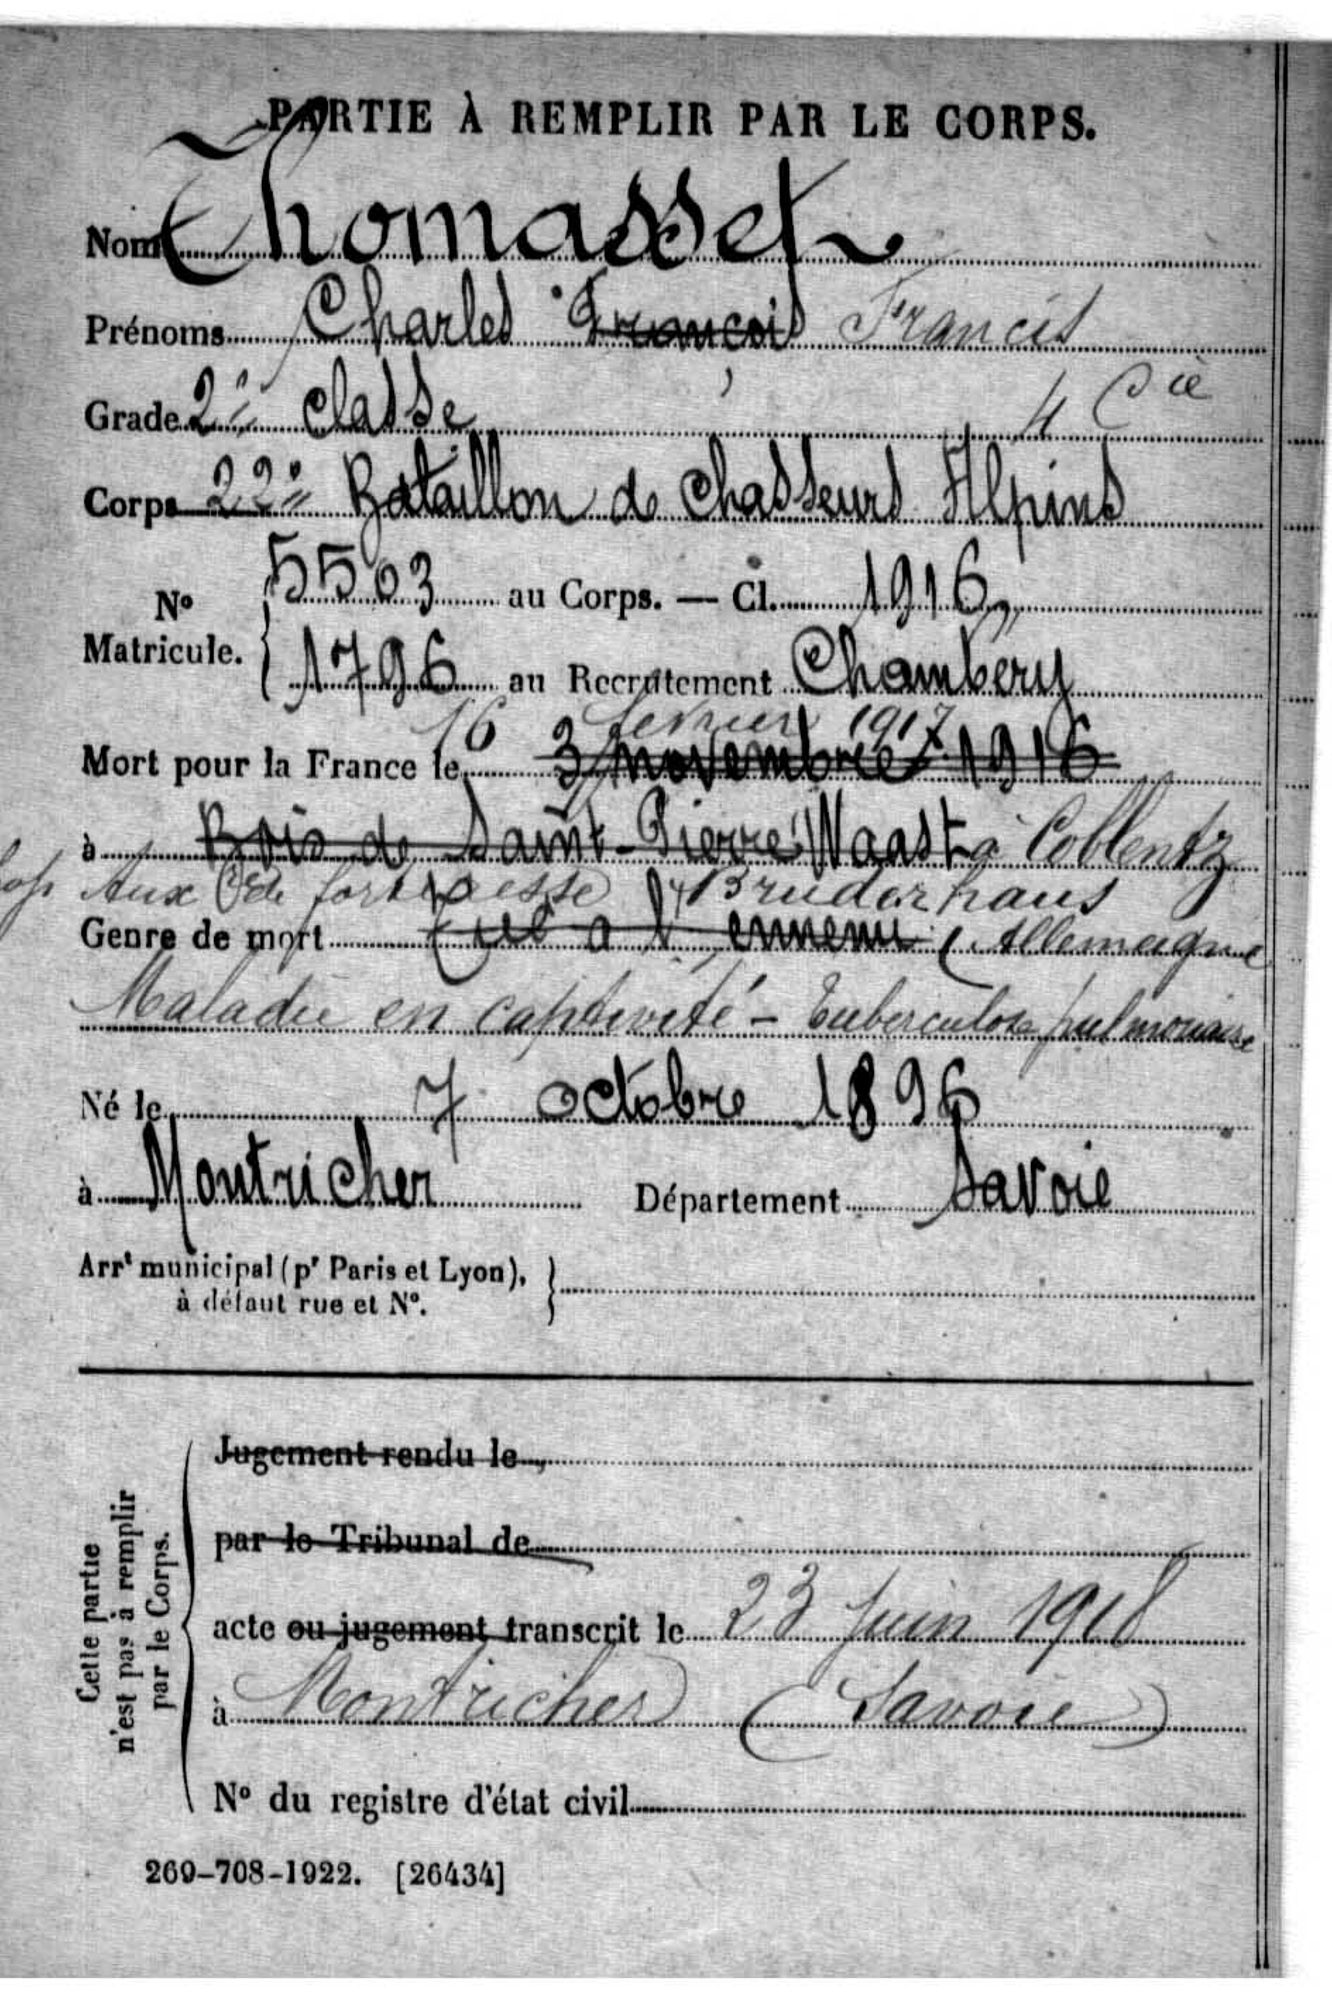 PARTIE À REMPLIR PAR LE CORPS.
Nom Thomasset
Prénoms Charles François Francis
Grade 2e classe 4 Cie
Corps 22e Bataillon de Chasseurs Alpins
No Matricule. 5503 au Corps. — Cl. 1916
1796 au Recrutement Chambéry
16 février 1917
Mort pour la France le 3 novembre 1916
à Bois de Saint-Pierre Waast à Coblentz
forteresse Bruderhaus
Genre de mort Tué à l'ennemi (Allemagne
Maladie en captivité - Tuberculose pulmonaire
Né le 7 octobre 1896
à Montricher Département Savoie
Arrt municipal (pr Paris et Lyon),
à défaut rue et No.
Cette partie
n'est pas à remplir
par le Corps.
Jugement rendu le
par le Tribunal de
acte ou jugement transcrit le 23 juin 1918
à Montricher (Savoie)
No du registre d'état civil
269-708-1922. [26434]